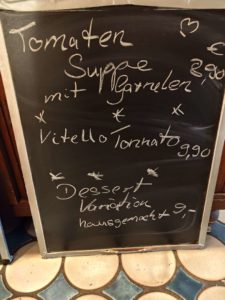 Tomaten
€
Suppe 7,90
mit Garnelen
Vitello Tonnato 9,90
Dessert
Variation
hausgemacht 9,-